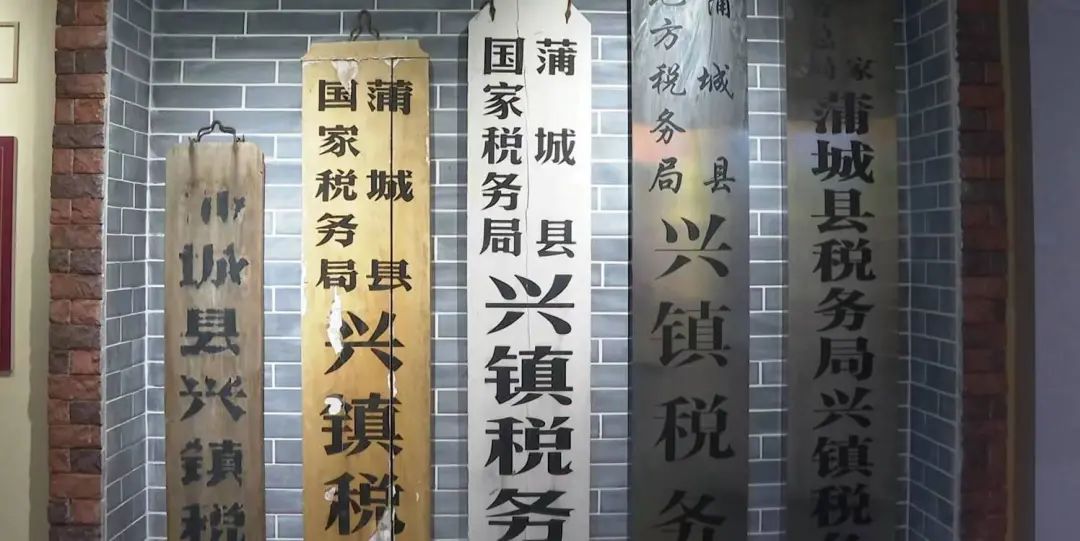 城县兴镇税
蒲城县
国家税务局
兴镇税
蒲城县
国家税务局
兴镇税务
蒲城县
地方税务局
兴镇税务
家
局
蒲城县税务局兴镇税务